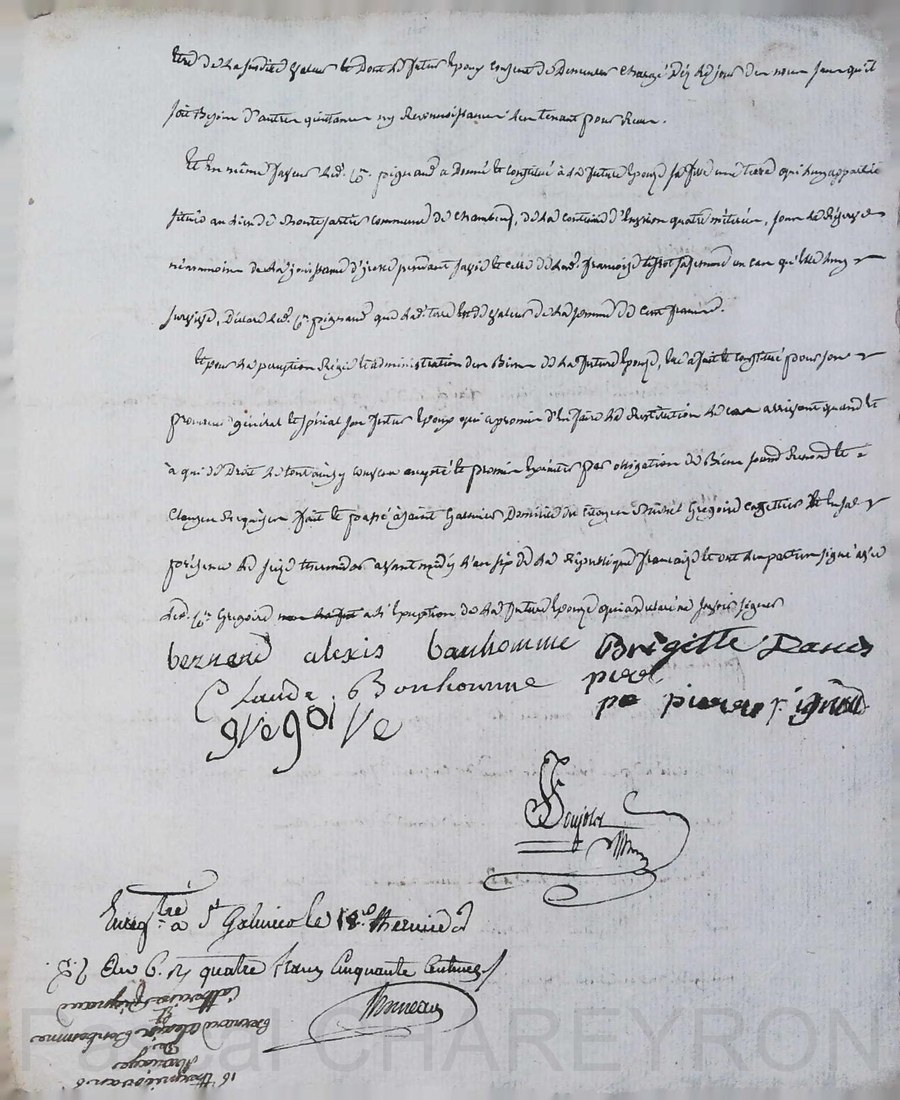 être de la susdite valeur et dont led. futur époux consent de demeurer chargé dès ce jour d'en nom sans qu'il
soit besoin d'autre quittance ny reconnoissance leur tenant pour
Et en même faveur led. Cn. pignaud a donné et constitué à la future épouse sa fille une terre qui luy appartient
située au lieu de commune de chambeuf, de la contenue d'environ quatre métérée, sous la réserve
néanmoins de la jouissance d'icelle pendant sa vie et celle de lad. françoise sa femme en cas qu'elle luy
survive, déclare led. Cn. pignaud que lad. terre est de valeur de la somme de cent francs.
et pour la perception régie et administration des biens de la future épouse, elle a fait et constitué pour son
procureur général et spécial son futur époux qui a promis d'en faire la restitution le cas arrivant quand et
à qui de droit le tout ainsy convenu accepté et promis exécuter par obligation de biens
clauses requises fait et passé à saint Galmier domicile du citoyen Gregoire cafetier et en sa
présence le seize thermidor avant midy l'an six de la république française et ont les parties signé avec
led. Cn. Gregoire à l'exception de la future épouse qui a déclaré ne savoir signer
bernard alexis bonhomme Brigitte
Claude Bonhomme pere
gregoire pe pierre pignaud
Enregtré à St Galmier le 18 thermidor
an 6. R. quatre francs cinquante centimes
16 thermidor an 6
mariage
de
Bernard alexis Bonhomme
et
Catherine Pignaud
Pascal CHAREYRON